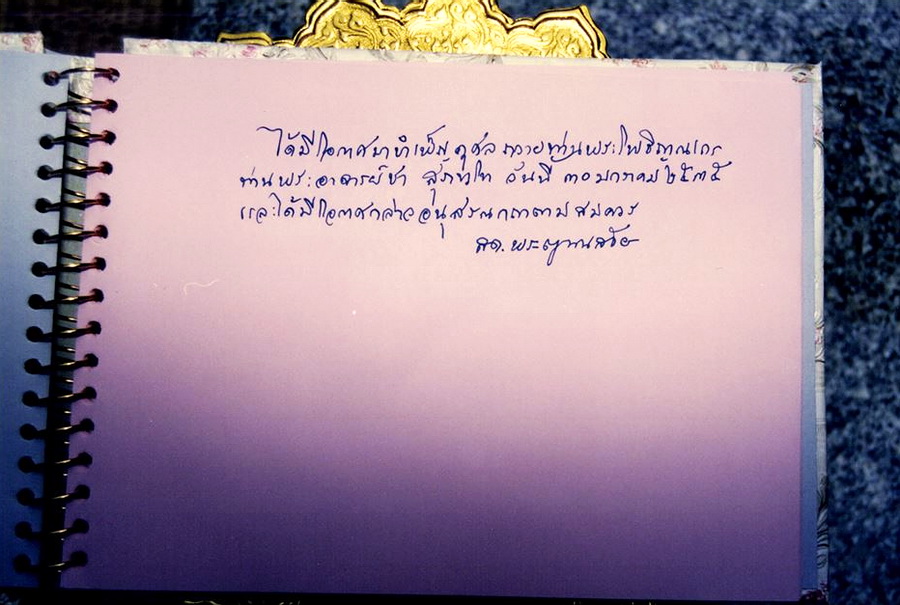 ได้มีโอกาสมาบำเพ็ญกุศล ถวายท่านพระโพธิญาณเถร
ท่านพระอาจารย์ชา สุภัทโท วันที่ ๓๐ มกราคม ๒๕๓๕
และได้มีโอกาสกล่าวอนุสรณกถาตามสมควร
สด. พระญาณ